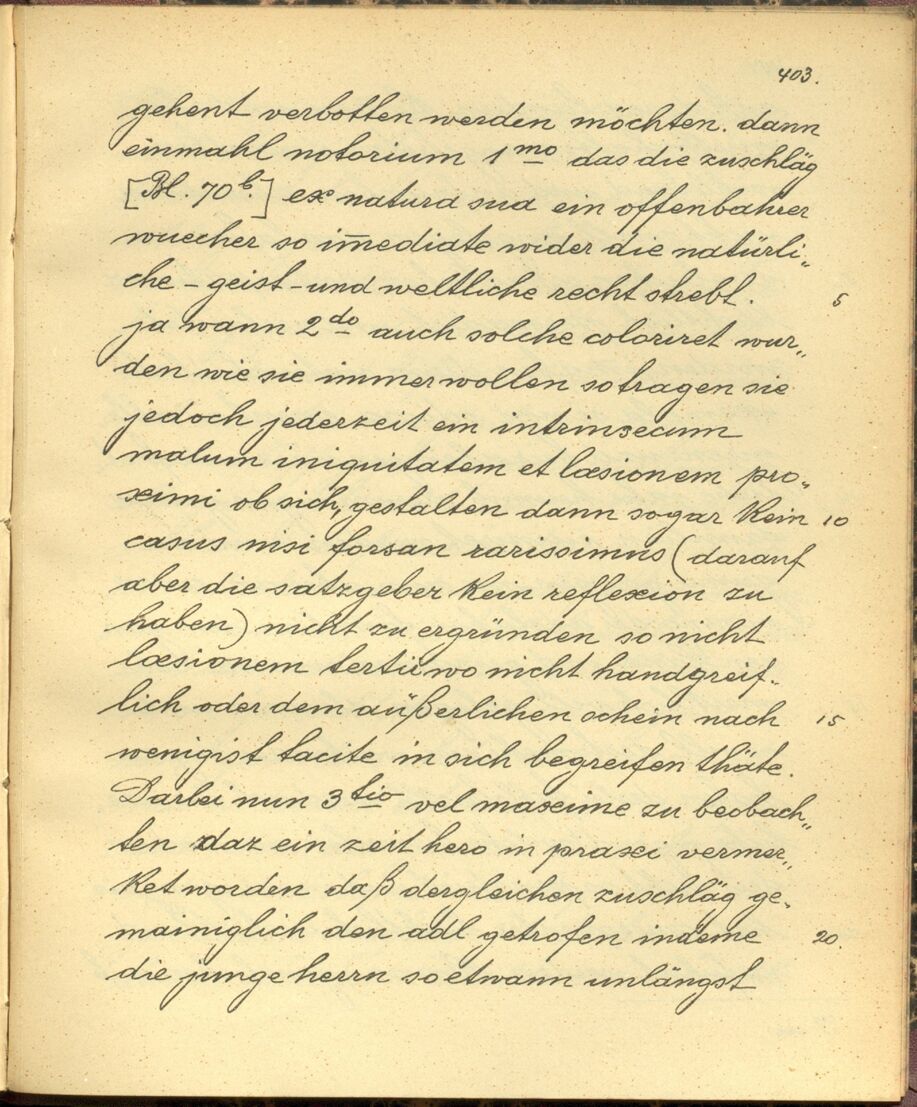 403.
gehent verbotten werden möchten. dann
einmahl notorium 1mo das die zuschläg
[Bl. 70b.] ex natura sua ein offenbahrer
wuecher so im̅ediate wider die natürli„
che - geist - und weltliche recht strebt. 5
ja wann 2do auch solche coloriret wur„
den wie sie immer wollen so tragen sie
jedoch jederzeit ein intrinsecum
malum iniquitatem et læsionem pro„
ximi ob sich, gestalten dann sogar kein 10
casus nisi forsan rarissimus (darauf
aber die satzgeber kein reflexion zu
haben) nicht zu ergründen so nicht
læsionem tertii wo nicht handgreif„
lich oder dem aüßerlichen schein nach 15
wenigist tacite in sich begreifen thäte.
Darbei nun 3tio vel maxime zu beobach„
ten daz ein zeit hero in praxi vermer„
ket worden daß dergleichen zuschläg ge„
mainiglich den adl getrofen indeme 20.
die junge herrn so etwann unlängst